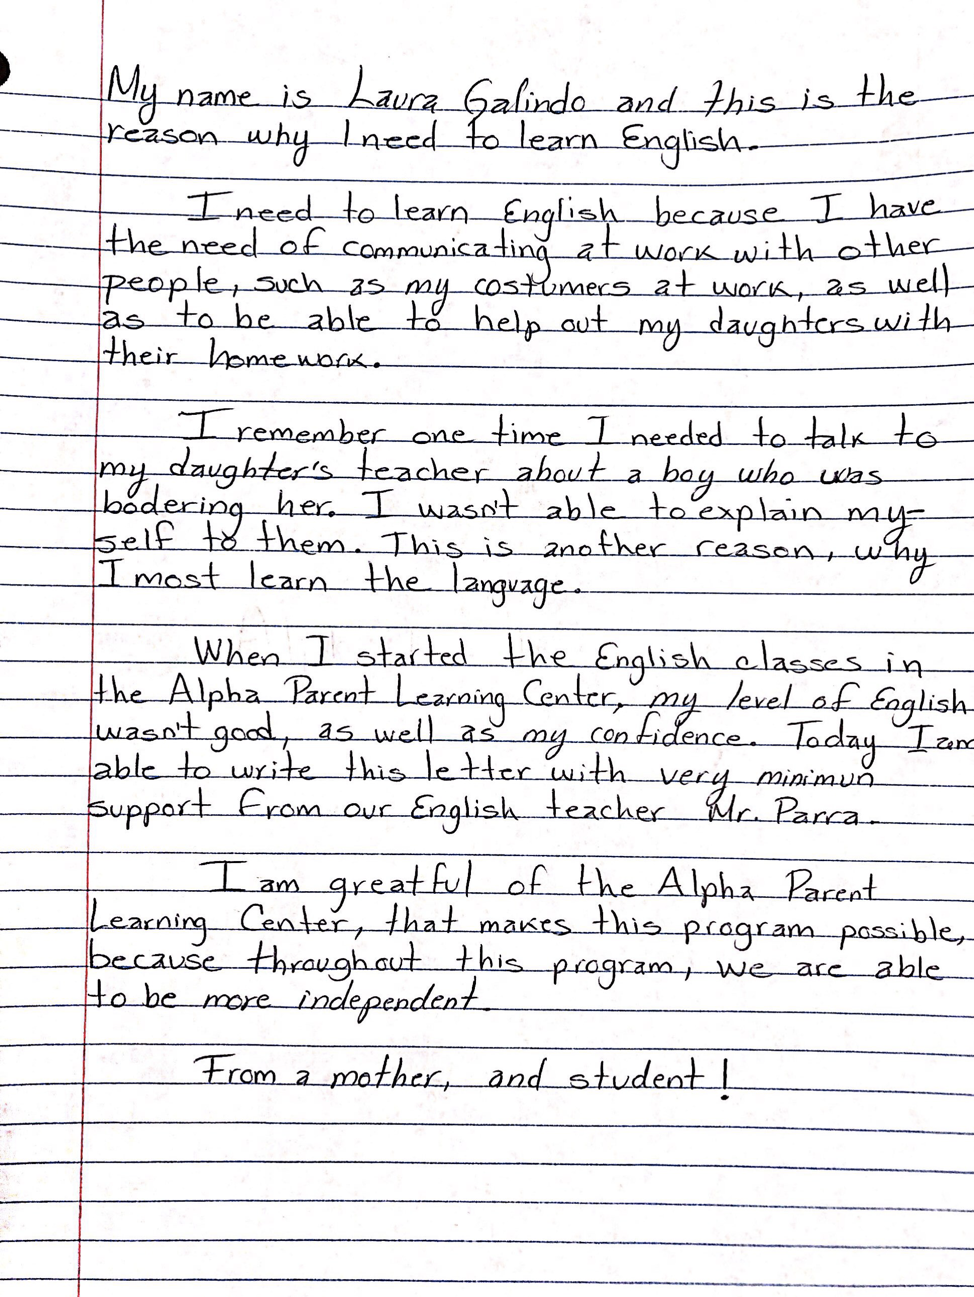 My name is Laura Galindo and this is the
reason why I need to learn English.
I need to learn English because I have
the need of communicating at work with other
people, such as my costumers at work, as well
as to be able to help out my daughters with
their homework.
I remember one time I needed to talk to
my daughter's teacher about a boy who was
bodering her. I wasn't able to explain my-
self to them. This is another reason, why
I most learn the language.
When I started the English classes in
the Alpha Parent Learning Center, my level of English
wasn't good, as well as my confidence. Today I am
able to write this letter with very minimun
support from our English teacher Mr. Parra.
I am greatful of the Alpha Parent
Learning Center, that makes this program possible,
because throughout this program, we are able
to be more independent.
From a mother, and student!